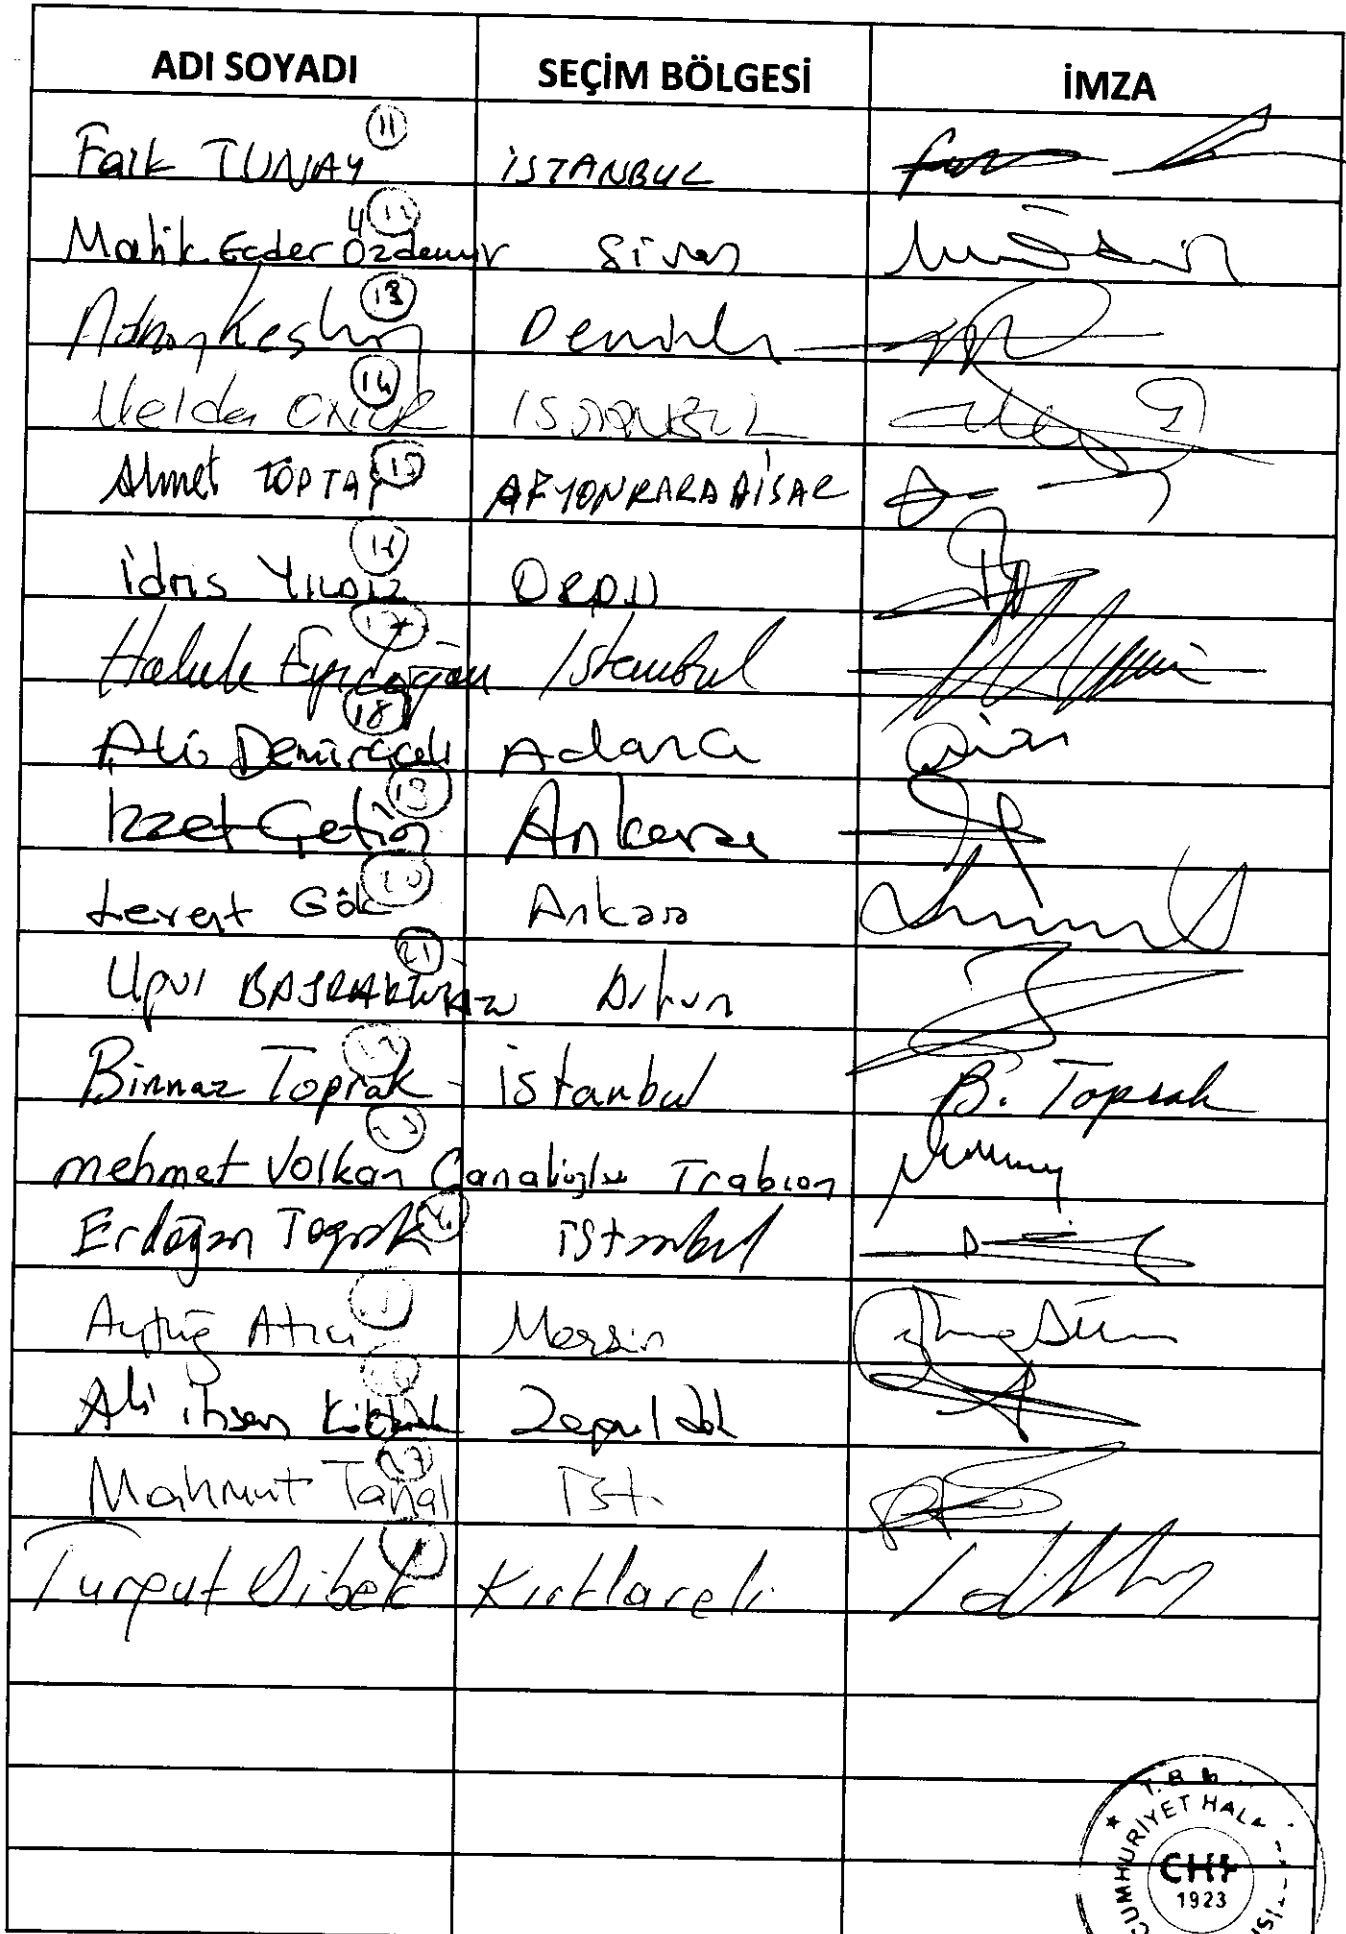 ADI SOYADI SEÇİM BÖLGESİ İMZA
Faik TUNAY 11 İSTANBUL
Malik Ecder Özdemir 12 Sivas
Adnan Keskin 13 Denizli
Melda ONUR 14 İSTANBUL
Ahmet TOPTAŞ 15 AFYONKARAHİSAR
İdris YILDIZ 16 ORDU
Haluk Eyidoğan 17 İstanbul
Ali Demirçalı 18 Adana
İzzet Çetin 19 Ankara
Levent Gök 20 Ankara
Uğur BAYRAKTUTAN 21 Artvin
Binnaz Toprak 22 İstanbul B. Toprak
Mehmet Volkan Canalioğlu 23 Trabzon
Erdoğan Toprak İstanbul
Aytuğ Atıcı Mersin
Ali İhsan Köktürk Zonguldak
Mahmut Tanal 27 İst.
Turgut Dibek Kırklareli
T.B.
CUMHURİYET HAL
CHP
1923